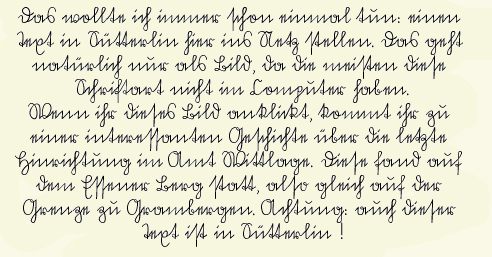 Das wollte ich immer schon einmal tun: einen
Text in Sütterlin hier ins Netz stellen. Das geht
natürlich nur als Bild, da die meisten diese
Schriftart nicht im Computer haben.
Wenn ihr dieses Bild anklikt, kommt ihr zu
einer interessanten Geschichte über die letzte
Hinrichtung im Amt Wittlage. Diese fand auf
dem Essener Berg statt, also gleich auf der
Grenze zu Grambergen. Achtung: auch dieser
Text ist in Sütterlin !